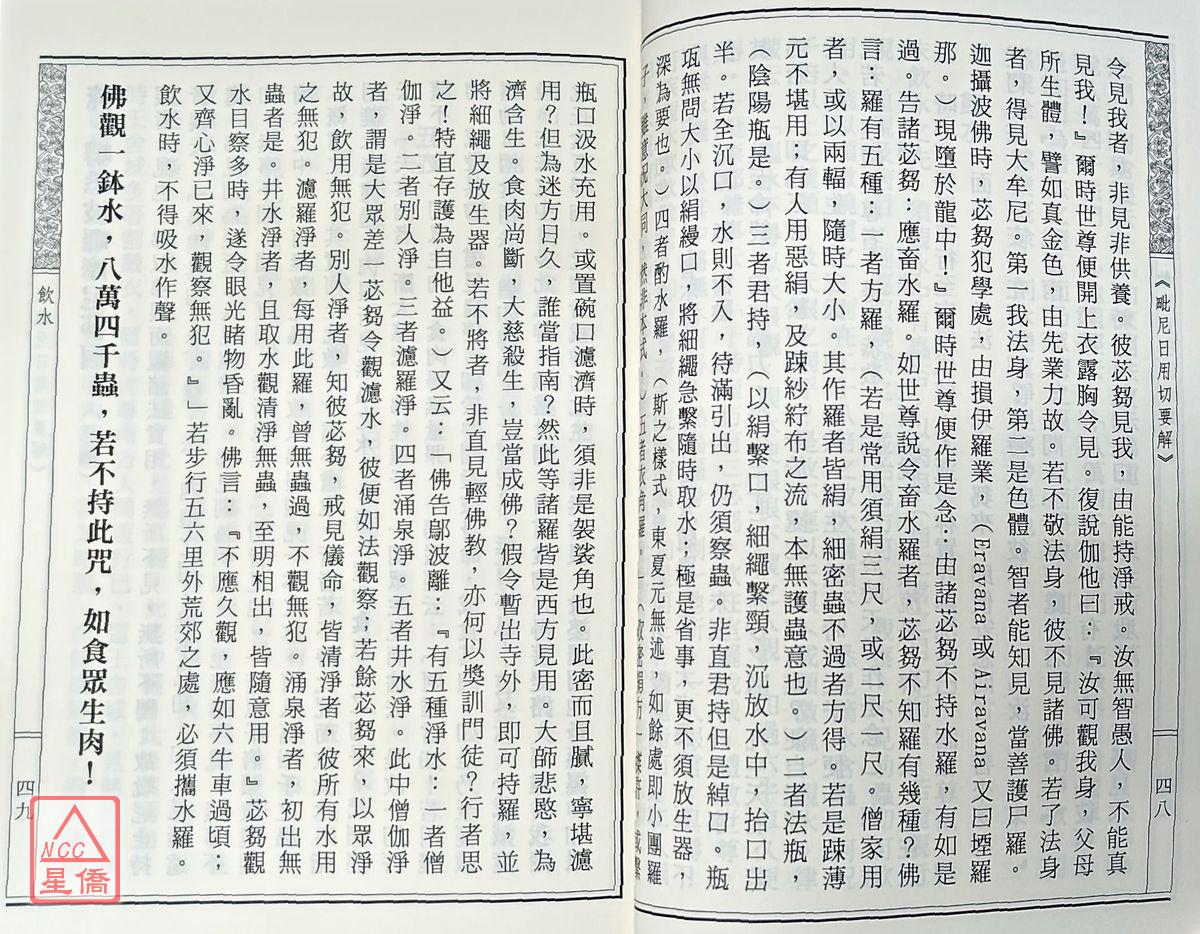 《毗尼日用切要解》
四八
令見我者，非見非供養。彼苾芻見我，由能持淨戒。汝無智愚人，不能真
見我！』爾時世尊便開上衣露胸令見。復說伽他曰：『汝可觀我身，父母
所生體，譬如真金色，由先業力故。若不敬法身，彼不見諸佛。若了法身
者，得見大牟尼。第一我法身，第二是色體。智者能知見，當善護尸羅。
迦攝波佛時，苾芻犯學處，由損伊羅業，（Eravana 或 Airavana 又曰堙羅
那。）現墮於龍中！』爾時世尊便作是念：由諸苾芻不持水羅，有如是
過。告諸苾芻：應畜水羅。如世尊說令畜水羅者，苾芻不知羅有幾種？佛
言：羅有五種：一者方羅，（若是常用須絹三尺，或二尺一尺。僧家用
者，或以兩輻，隨時大小。其作羅者皆絹，細密蟲不過者方得。若是踈薄
元不堪用；有人用惡絹，及踈紗紵布之流，本無護蟲意也。）二者法瓶，
（陰陽瓶是。）三者君持，（以絹繫口，細繩繫頸，沉放水中，抬口出
半。若全沉口，水則不入，待滿引出，仍須察蟲。非直君持但是綽口。瓶
瓨無問大小以絹縵口，將細繩急繫隨時取水；極是省事，更不須放生器，
深為要也。）四者酌水羅，（斯之樣式，東夏元無述，如餘處即小團羅
子，雖意況大同，然非本式。）五者衣角羅。
飲水
四九
瓶口汲水充用。或置碗口濾濟時，須非是袈裟角也。此密而且膩，寧堪濾
用？但為迷方日久，誰當指南？然此等諸羅皆是西方見用。大師悲愍，為
濟含生。食肉尚斷，大慈殺生，豈當成佛？假令暫出寺外，即可持羅，並
將細繩及放生器。若不將者，非直見輕佛教，亦何以獎訓門徒？行者思
之！特宜存護為自他益。）又云：「佛告鄔波離：『有五種淨水：一者僧
伽淨。二者別人淨。三者濾羅淨。四者涌泉淨。五者井水淨。此中僧伽淨
者，謂是大眾差一苾芻令觀濾水，彼便如法觀察；若餘苾芻來，以眾淨
故，飲用無犯。別人淨者，知彼苾芻，戒見儀命，皆清淨者，彼所有水用
之無犯。濾羅淨者，每用此羅，曾無蟲過，不觀無犯。涌泉淨者，初出無
蟲者是。井水淨者，且取水觀清淨無蟲，至明相出，皆隨意用。』苾芻觀
水目察多時，遂令眼光睹物昏亂。佛言：『不應久觀，應如六牛車過頃；
又齊心淨已來，觀察無犯。』」若步行五六里外荒郊之處，必須攜水羅。
飲水時，不得吸水作聲。
佛觀一鉢水，八萬四千蟲，若不持此咒，如食眾生肉！
NCC
星僑